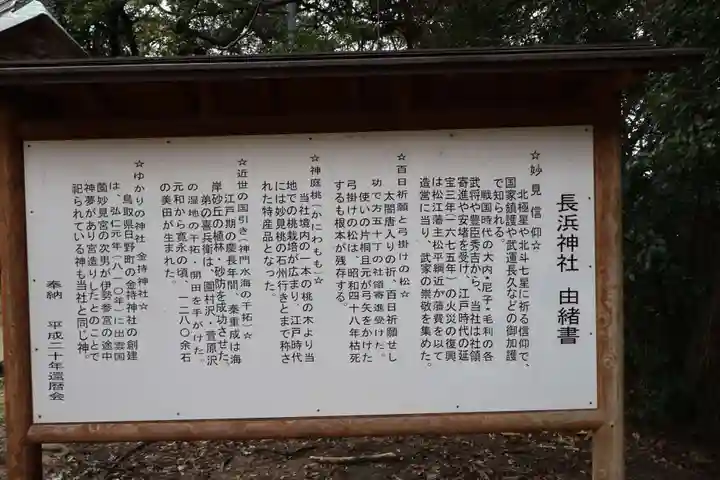 長浜神社 由緒書
☆妙見信仰☆
北極星や北斗七星に祈る信仰で、
国家鎮護や武運長久などの御加護
で知られる。
戦国時代の大内・尼子・毛利の各
武将や豊臣秀吉から、当社は社領
寄進や安堵を受け、江戸時代の延
宝三年(一六七五年)の火災の復興
は松江藩主松平綱近が藩費を以て
造営に当り、武家の崇敬を集めた。
☆百日祈願と弓掛けの松☆
太閤唐入りの折、百日祈願せし
功で方五十八町の社領寄進受けた。
使いの片桐且元が弓矢をかけた
弓掛けの松は、昭和四十八年枯死
するも根本が残存する。
☆神庭桃(かにわもも)☆
当社境内の一本の桃の木より当
地での桃栽培が広まり、江戸時代
には妙見桃の石州行きとまで称さ
れた特産品となった。
☆近世の国引き(神門水海の干拓)☆
江戸期の慶長年間、秦重成は海
岸砂丘の植林・砂防を成功させた。
弟の喜兵衛は、園村沢・萱原沢
の湿地の干拓・開田を手がけた。
元和から寛永の頃、一二八〇余石
の美田が生まれた。
☆ゆかりの神社 金持神社☆
鳥取県日野町の金持神社の創建
は、弘仁元年(八一〇年)に出雲国
薗妙見宮の次男が伊勢参宮の途中
神夢があり宮造りしたとのことで
祀られている神も当社と同じ神。
奉納 平成二十年還暦会